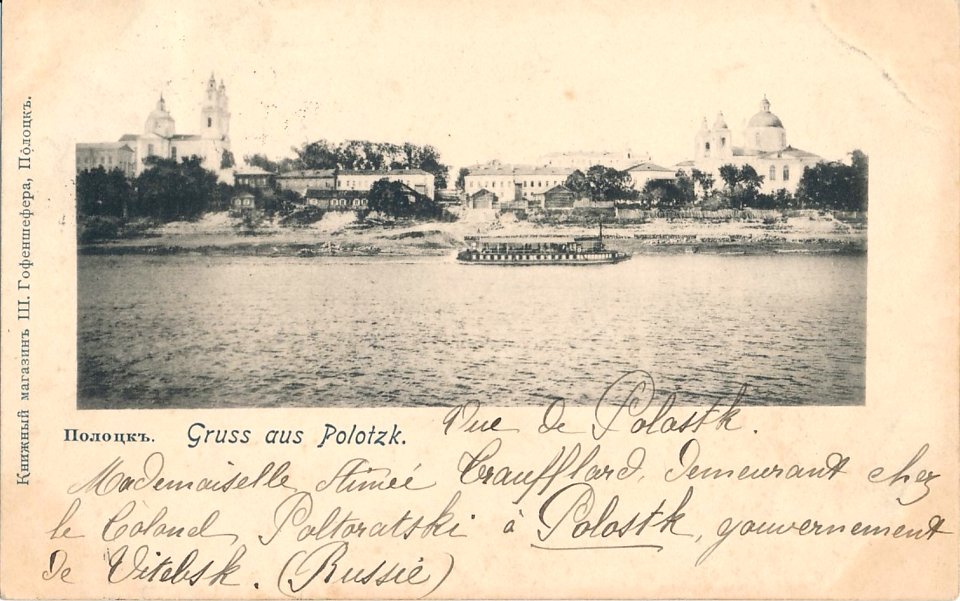 Книжный магазинъ Ш. Гофеншефера, Полоцкъ.
Полоцкъ. Gruss aus Polotzk.
Vue de Polostk.
Mademoiselle Aimée demeurant chez
le Colonel Poltoratski à Polostk, gouvernement
de Vitebsk. (Russie)